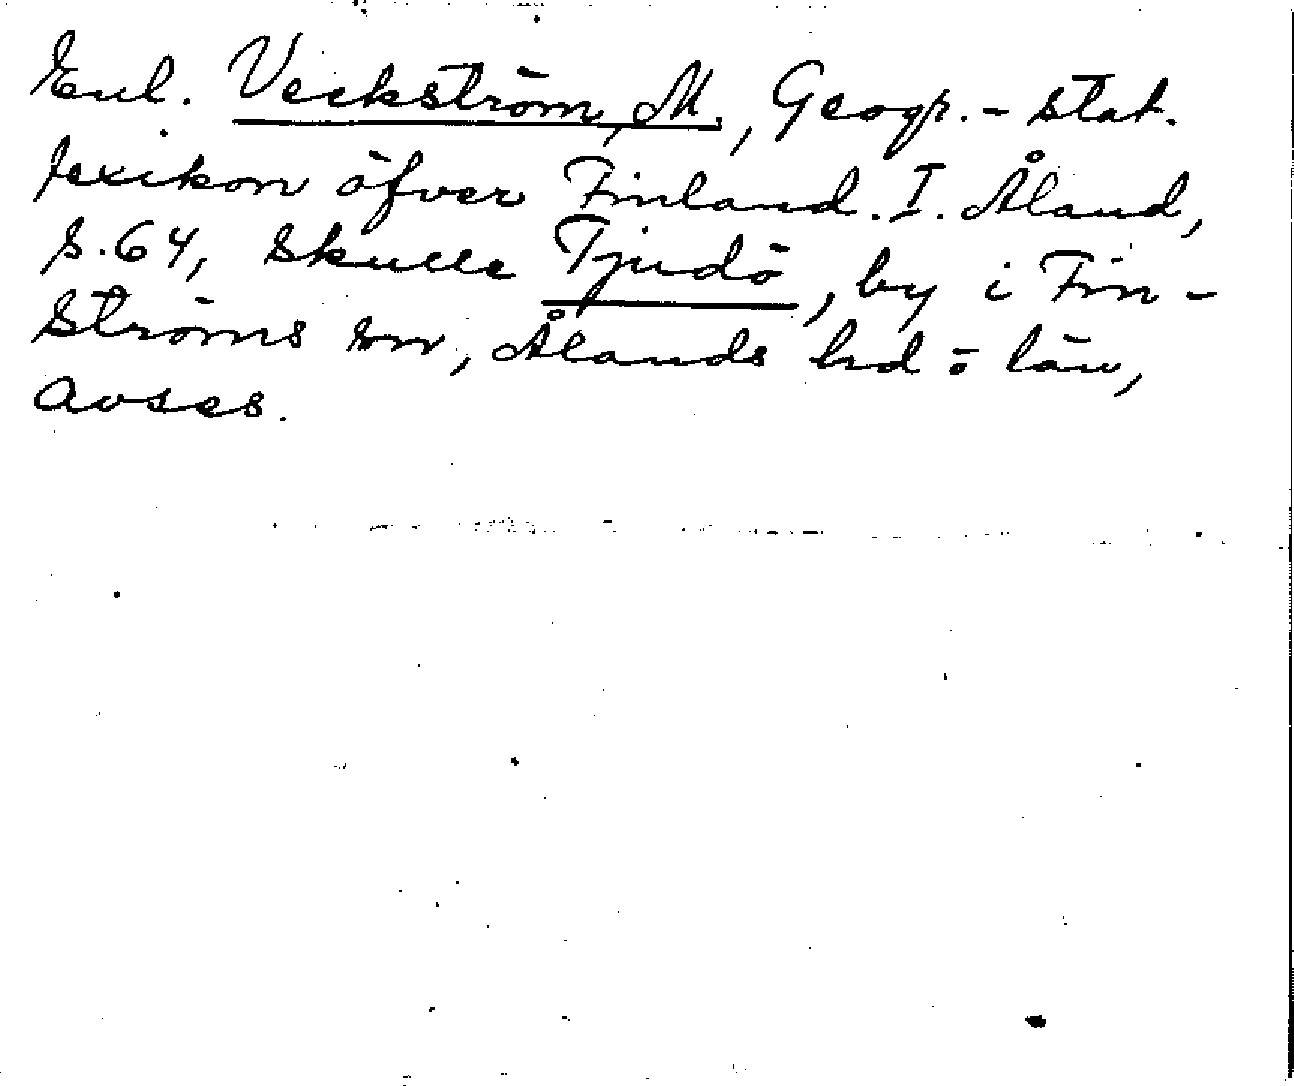 Enl. Veckström, M., Geogr.-stat.
lexikon öfver Finland. I. Åland,
s. 64, skulle Tjudö, by i Fin-
ströms sn, Ålands hd o län,
avses.